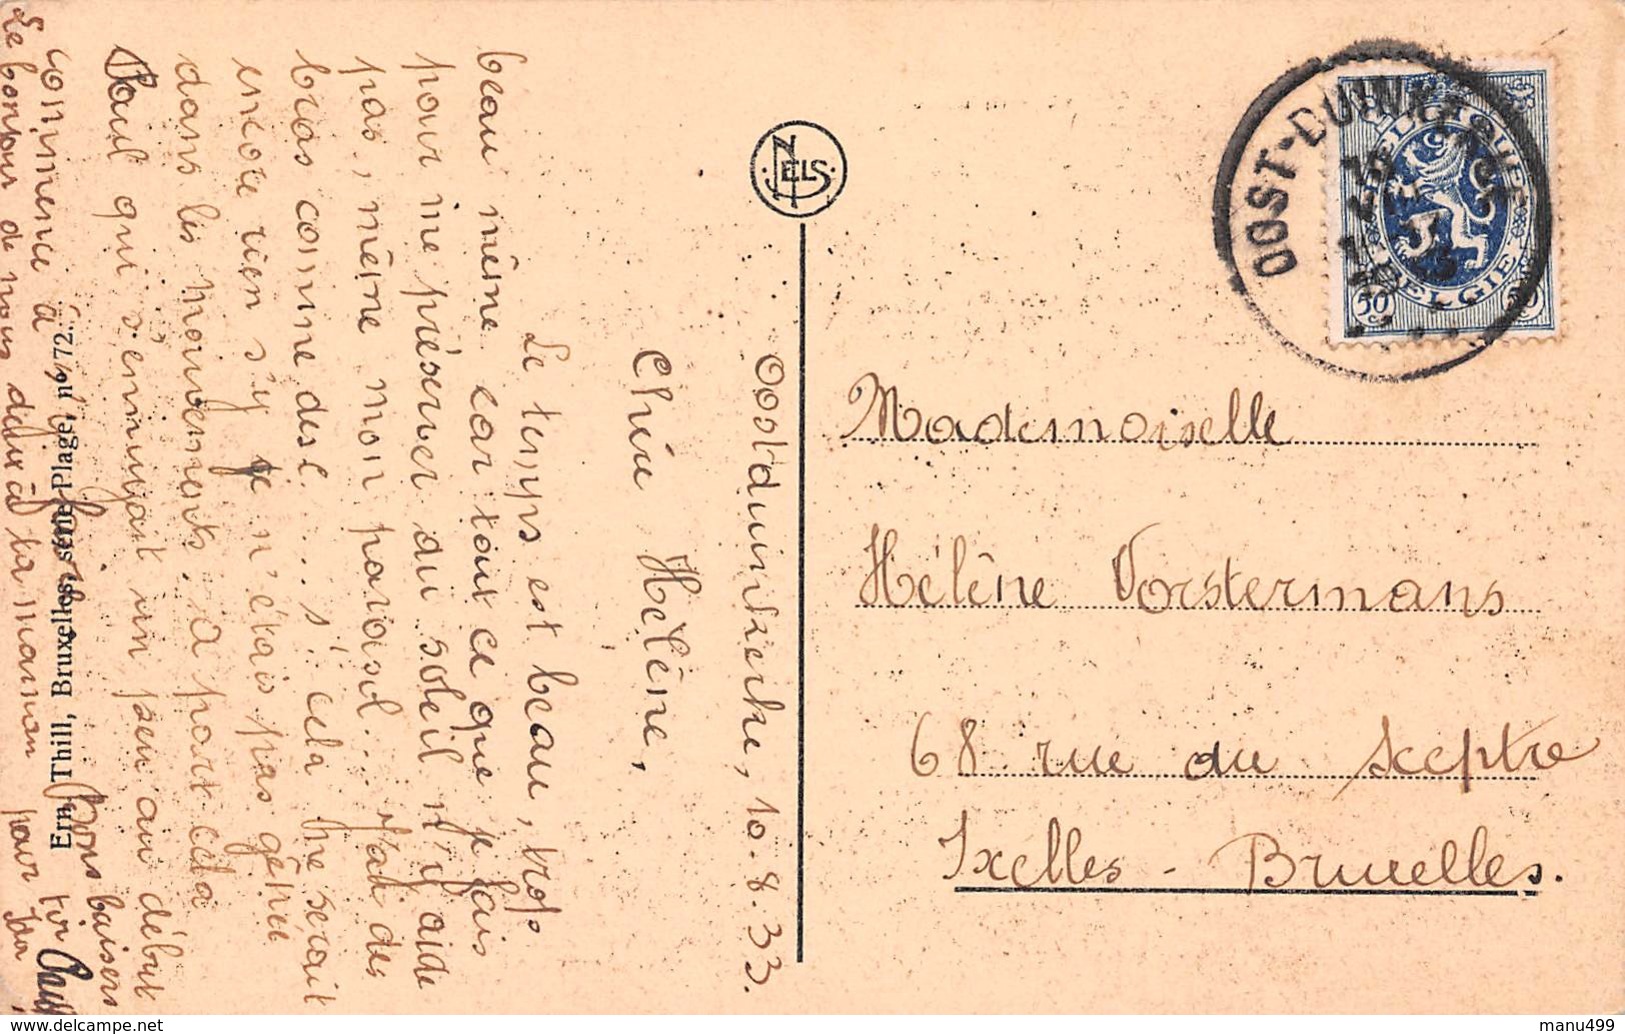 Oostduinkerke, 10.8.33.
Chère Hélène,
Le temps est beau, trop
beau même car tout ce que je fais
pour me préserver du soleil n'y aide
pas, même mon parasol... J'ai des
bras comme des l.... s'... cela ne serait
encore rien s'y je n'étais pas gênée
dans les mouvements. A part cela
Paul qui s'ennuyait un peu au début
commence à
Bons baisers
Le bonjour de nous deux à ta maman pour toi
Ern. Thill, Bruxelles, série Plage, no 72.
NELS
OOST-DUINKERKE
BELGIQUE
BELGIE
50
Mademoiselle
Hélène Vorstermans
68 rue du Sceptre
Ixelles - Bruxelles.
delcampe.net
manu499